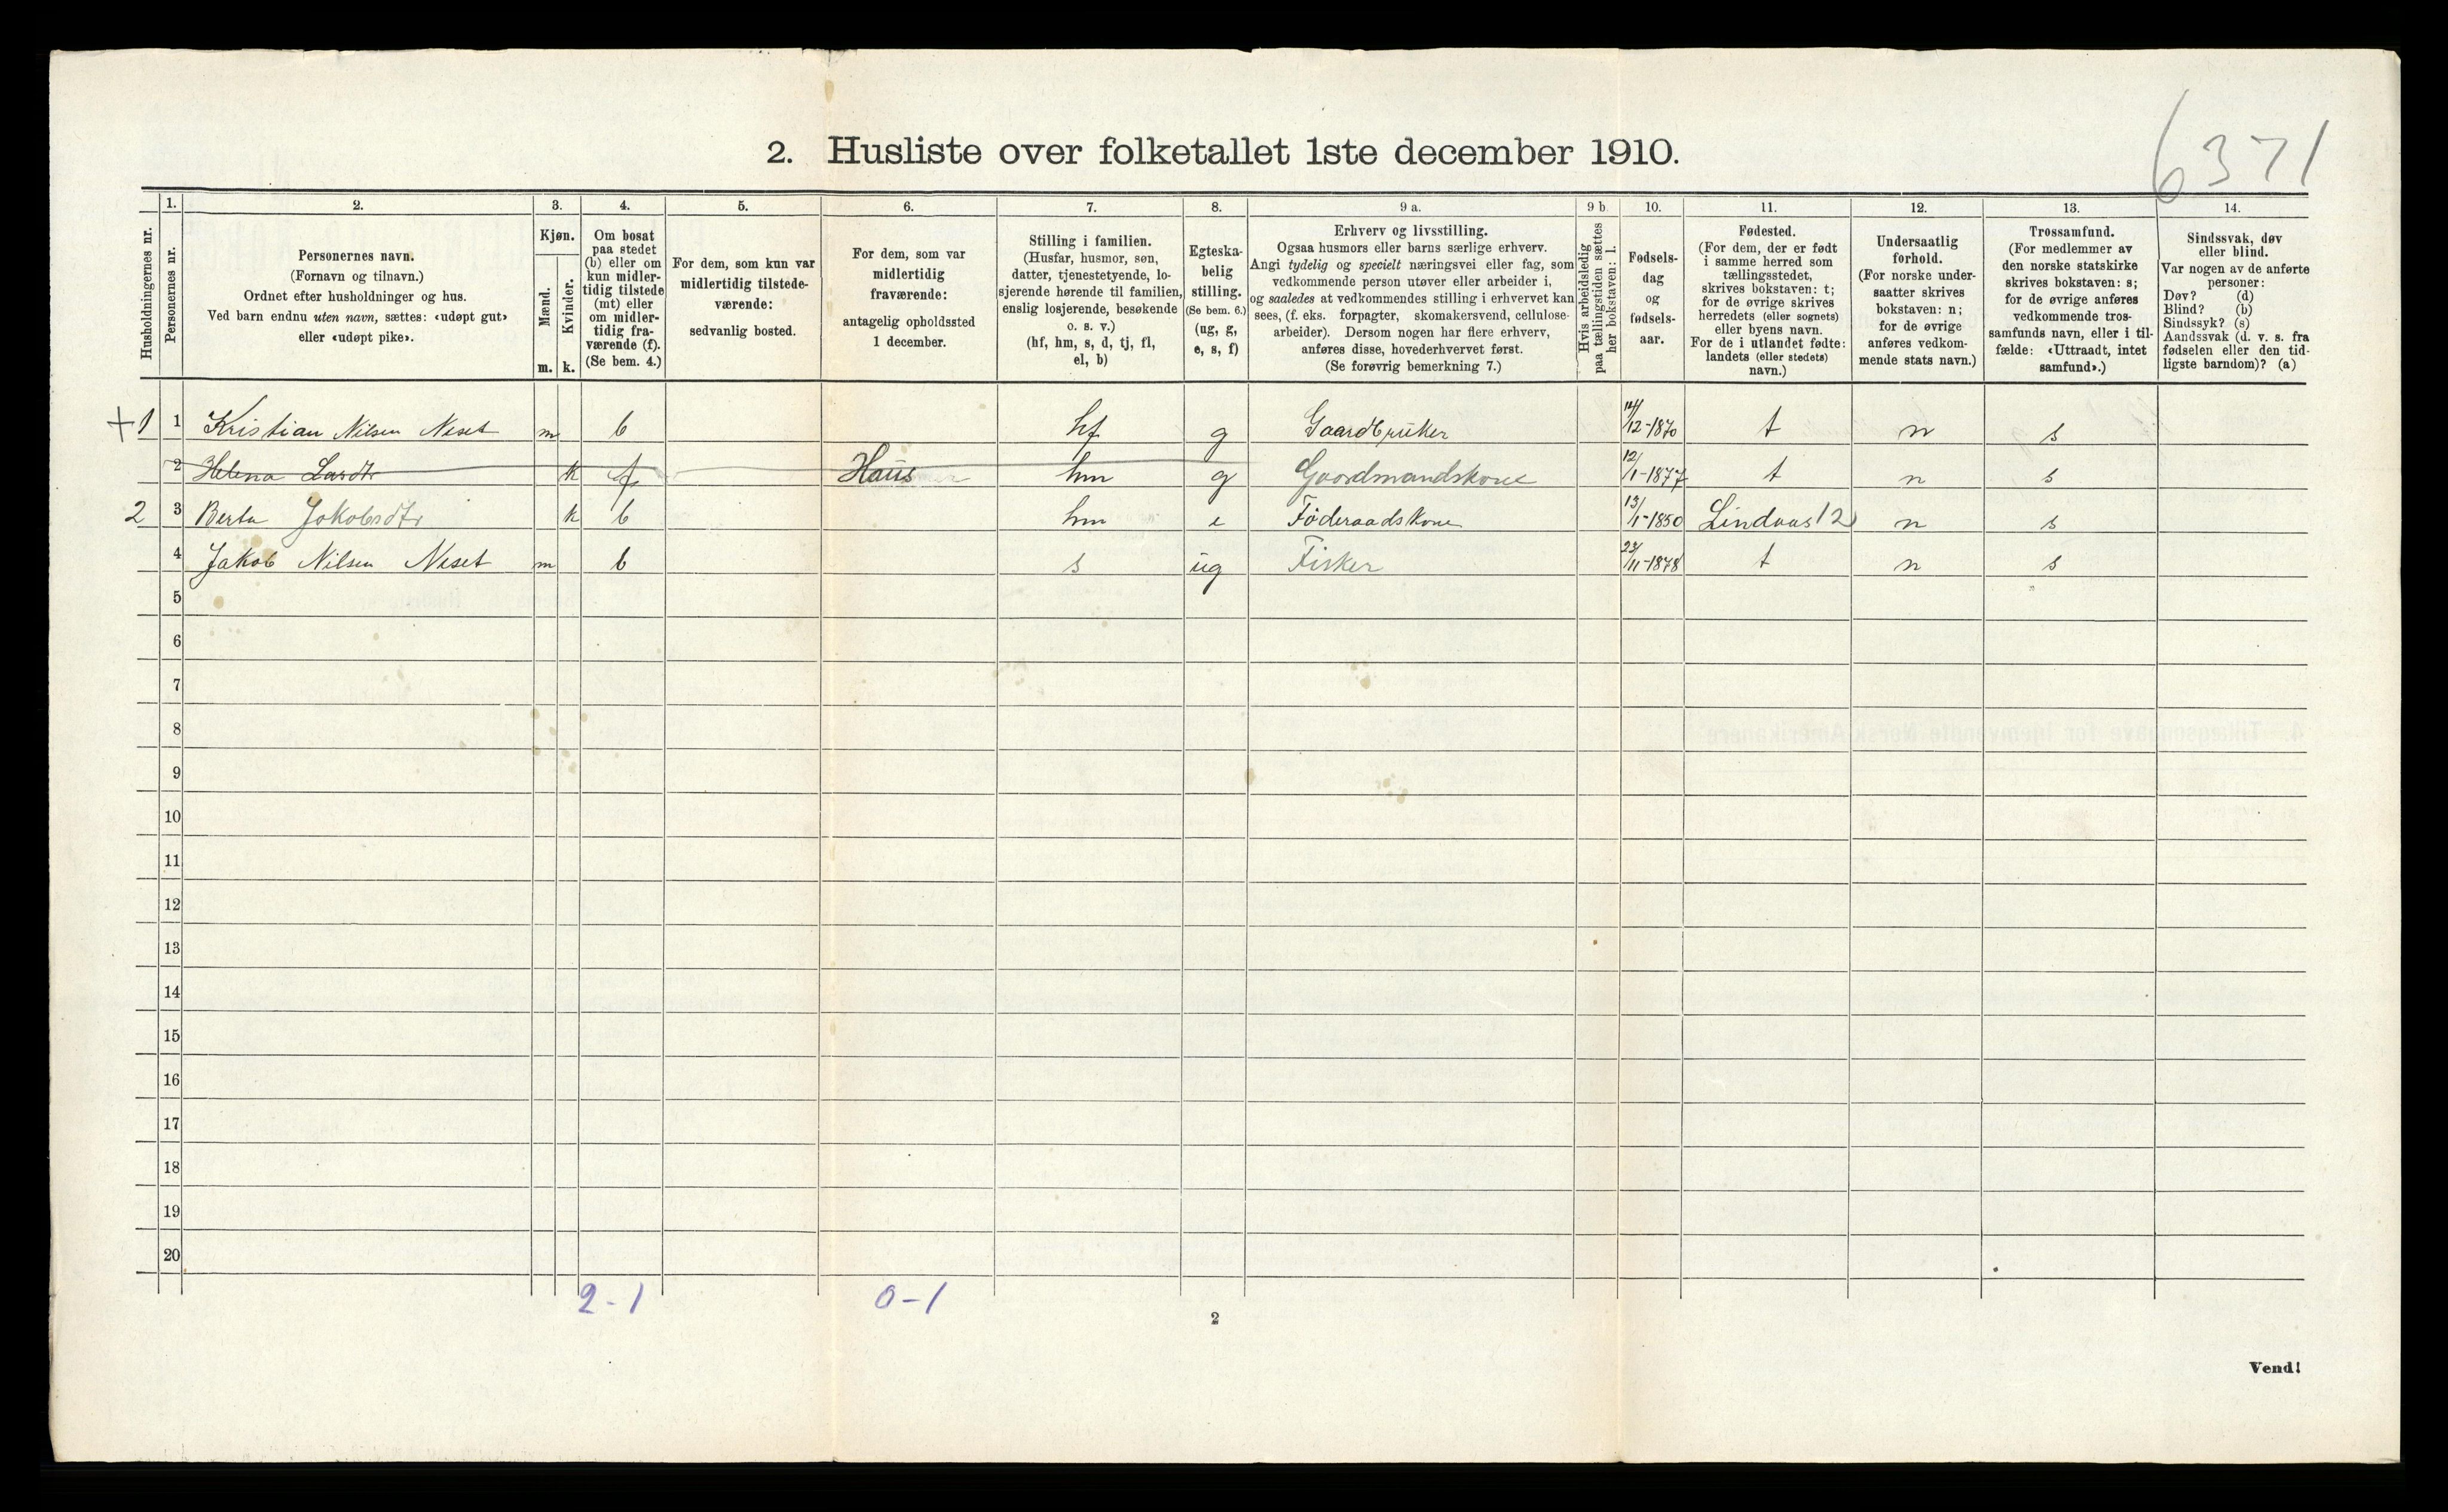 6371
2. Husliste over folketallet 1ste december 1910.
Husholdningernes nr.
1.
Personernes nr.
2.
Personernes navn.
(Fornavn og tilnavn.)
Ordnet efter husholdninger og hus.
Ved barn endnu uten navn, sættes: «udøpt gut»
eller «udøpt pike».
3.
Kjøn.
Mænd.
Kvinder.
m. k.
4.
Om bosat
paa stedet
(b) eller om
kun midler-
tidig tilstede
(mt) eller
om midler-
tidig fra-
værende (f).
(Se bem. 4.)
5.
For dem, som kun var
midlertidig tilstede-
værende:
sedvanlig bosted.
6.
For dem, som var
midlertidig
fraværende:
antagelig opholdssted
1 december.
7.
Stilling i familien.
(Husfar, husmor, søn,
datter, tjenestetyende, lo-
sjerende hørende til familien,
enslig losjerende, besøkende
o. s. v.)
(hf, hm, s, d, tj, fl,
el, b)
8.
Egteska-
belig
stilling.
(Se bem. 6.)
(ug, g,
e, s, f)
9 a.
Erhverv og livsstilling.
Ogsaa husmors eller barns særlige erhverv.
Angi tydelig og specielt næringsvei eller fag, som
vedkommende person utøver eller arbeider i,
og saaledes at vedkommendes stilling i erhvervet kan
sees, (f. eks. forpagter, skomakersvend, cellulose-
arbeider). Dersom nogen har flere erhverv,
anføres disse, hovederhvervet først.
(Se forøvrig bemerkning 7.)
9 b.
Hvis arbeidsledig
paa tællingstiden sættes
her bokstaven: l.
10.
Fødsels-
dag
og
fødsels-
aar.
11.
Fødested.
(For dem, der er født
i samme herred som
tællingsstedet,
skrives bokstaven: t;
for de øvrige skrives
herredets (eller sognets)
eller byens navn.
For de i utlandet fødte:
landets (eller stedets)
navn.)
12.
Undersaatlig
forhold.
(For norske under-
saatter skrives
bokstaven: n;
for de øvrige
anføres vedkom-
mende stats navn.)
13.
Trossamfund.
(For medlemmer av
den norske statskirke
skrives bokstaven: s;
for de øvrige anføres
vedkommende tros-
samfunds navn, eller i til-
fælde: «Uttraadt, intet
samfund».)
14.
Sindssvak, døv
eller blind.
Var nogen av de anførte
personer:
Døv? (d)
Blind? (b)
Sindssyk? (s)
Aandssvak (d. v. s. fra
fødselen eller den tid-
ligste barndom)? (a)
+1 1 Kristian Nilsen Neset m b hf g Gaardbruker 14/12-1870 t n s
2 Helena Larsdtr k f Haus hm g Gaardmandskone 12/1-1877 t n s
2 3 Berta Jakobsdtr k b hm e Föderaadskone 13/1-1850 Lindaas 12 n s
4 Jakob Nilsen Neset m b s ug Fisker 23/11-1878 t n s
5
6
7
8
9
10
11
12
13
14
15
16
17
18
19
20
2-1 0-1
2
Vend!